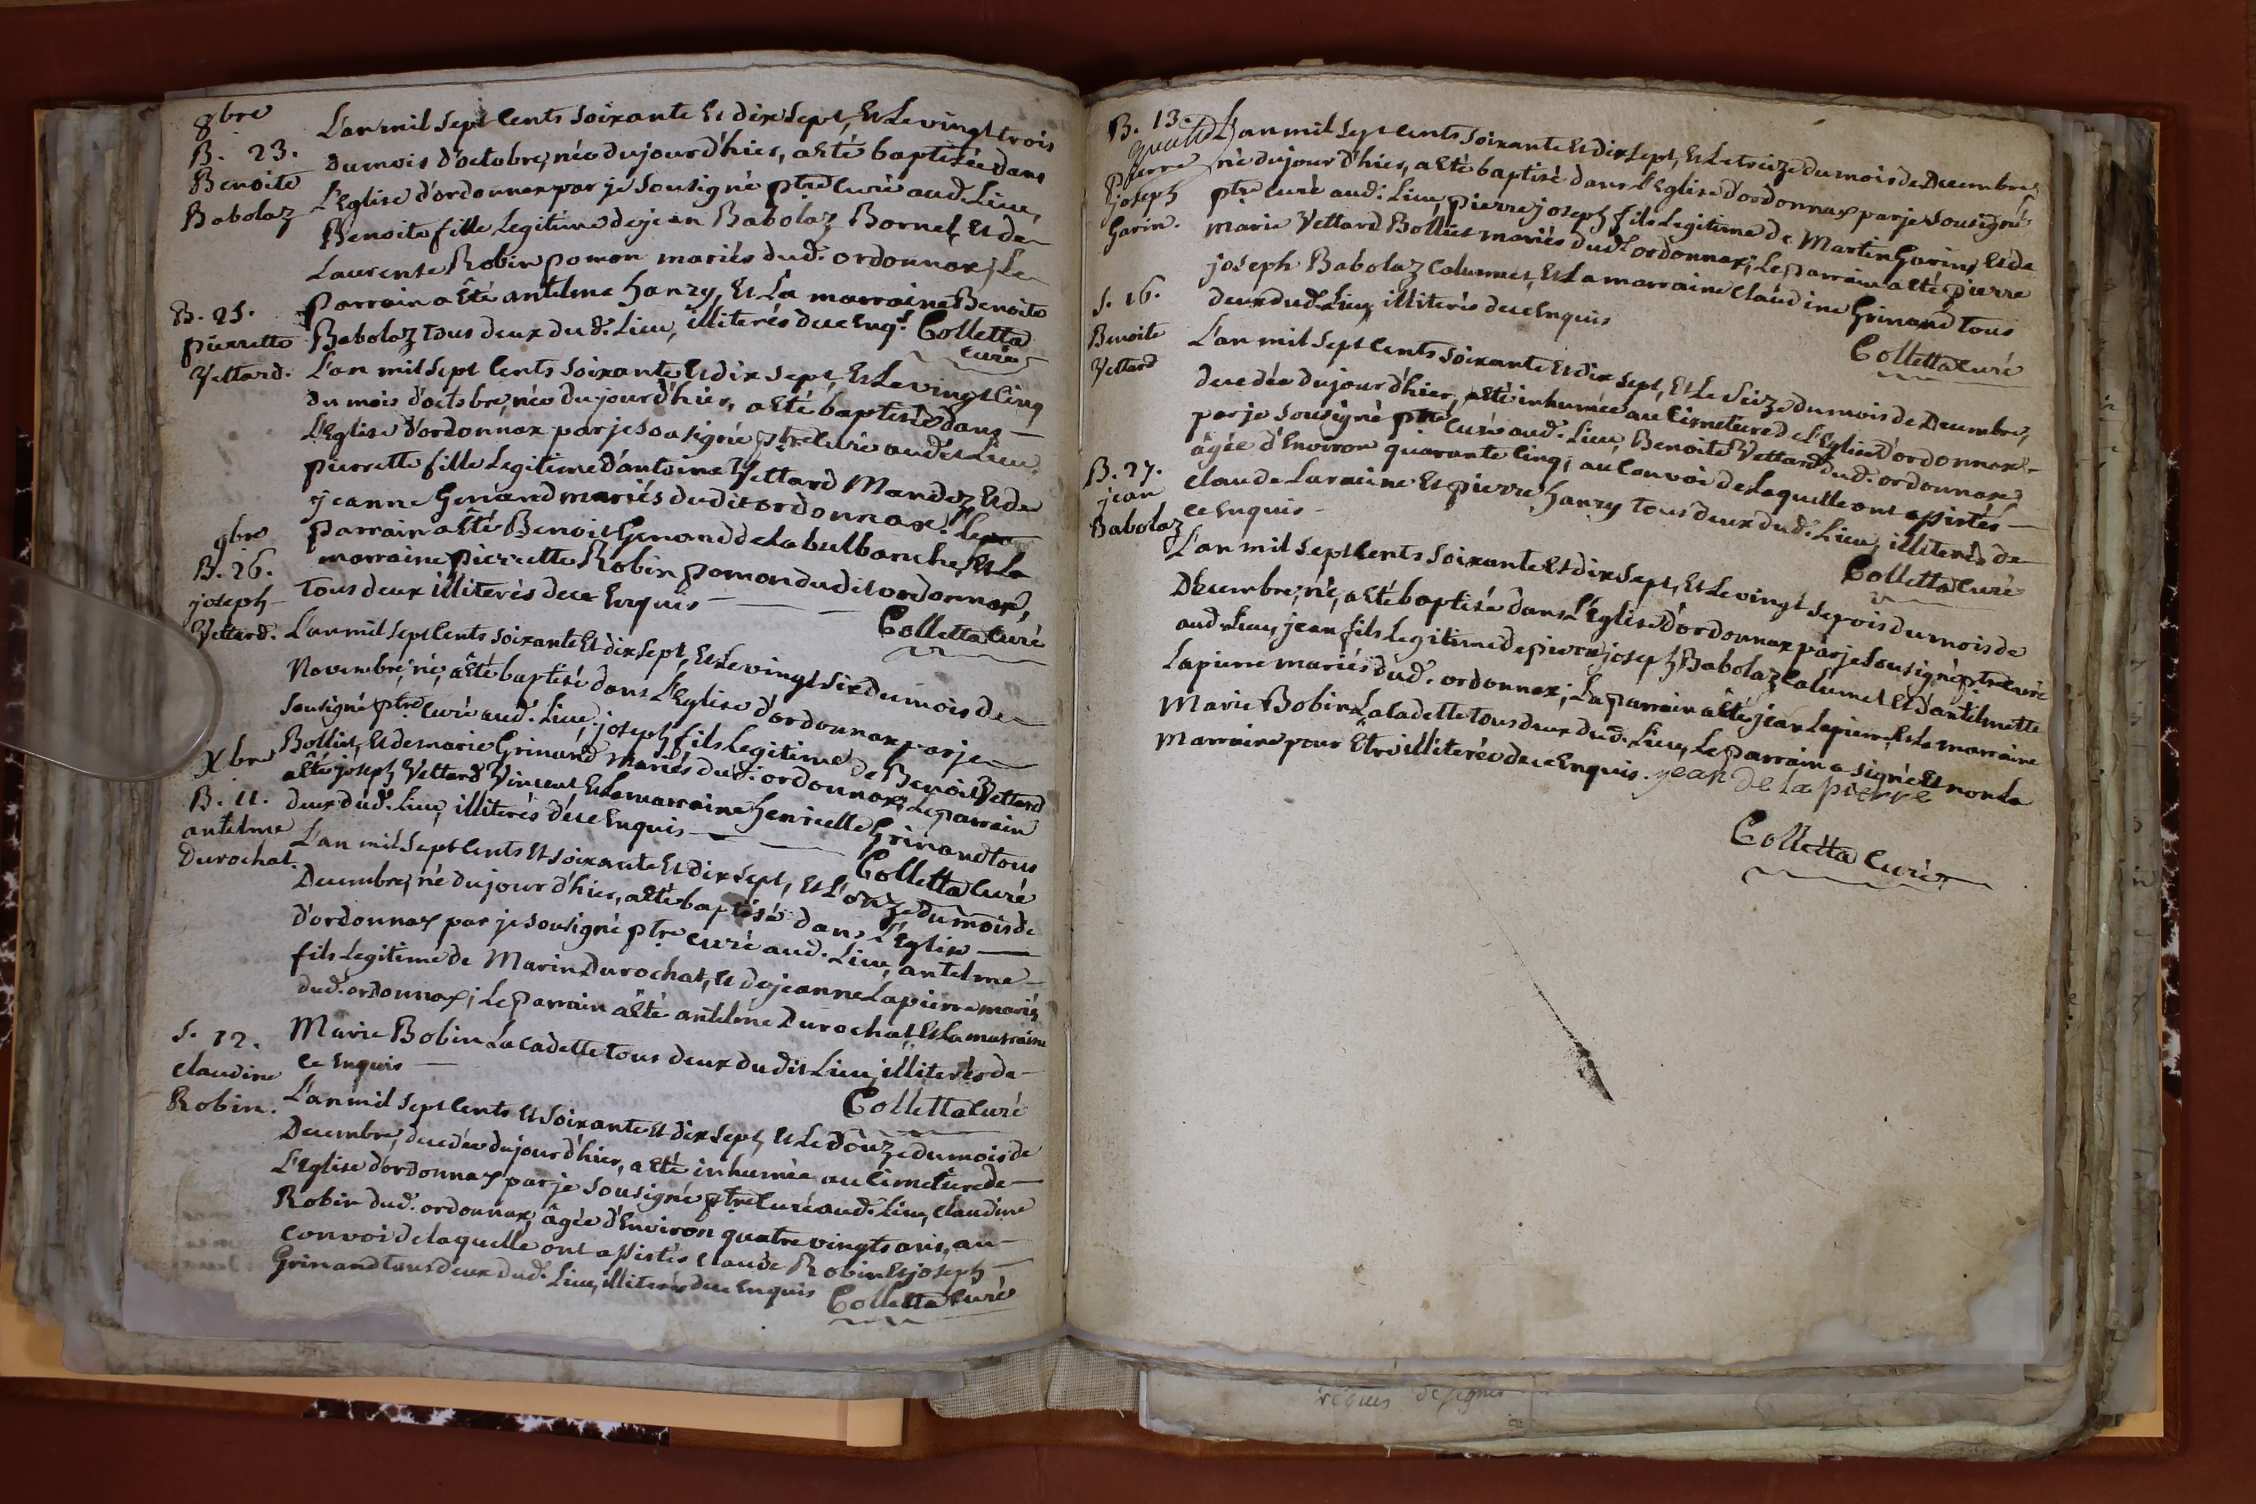 8bre
B. 23.
Benoite
Babolaz
L'an mil sept cents soixante et dix sept, et le vingt trois
du mois d'octobre, née du jour d'hier, a été baptisée dans
l'Eglise d'ordonnax par je sousigné ptre curé aud. Lieu,
Benoite fille legitime de jean Babolaz Bornet, et de
Laurense Robin pomon mariés dud. ordonnax; Le
parrain a été antelme hanzy, et La marraine Benoite
Babolaz tous deux dud. Lieu, illiterés de ce enq. Colletta
curé
B. 25.
pierrette
Vettard.
L'an mil sept cents soixante et dix sept et Le vingt cinq
du mois d'octobre, née du jour d'hier, a été baptisée dans
L'Eglise d'ordonnax par je sousigné ptre curé audit Lieu,
pierrette fille Legitime d'antoine Vettard Mandez, et de
jeanne Genand mariés dudit ordonnax; Le
parrain a été Benoit Genand de La bulbanche, et La
marraine pierrette Robin pomon dudit ordonnax,
tous deux illiterés de ce enquis
Colletta curé
9bre
B. 26.
joseph
Vettard.
L'an mil sept cents soixante et dix sept, et Le vingt six du mois de
Novembre; né, a été baptisé dans L'Eglise d'ordonnax par je
sousigné ptre curé aud. Lieu, joseph fils Legitime de Benoit Vettard
Bolliet, et de marie Grinand mariés dud. ordonnax; Le parrain
a été joseph Vettard Vincent, et La marraine henriette Grinand tous
deux dud. Lieu, illiterés de ce enquis
Colletta curé
Xbre
B. 11.
antelme
Durochat.
L'an mil sept cents et soixante et dix sept, et L'onze du mois de
Decembre, né du jour d'hier, a été baptisé dans L'Eglise
d'ordonnax par je sousigné ptre curé aud. Lieu, antelme
fils Legitime de Marin Durochat, et de jeanne Lapierre mariés
dud. ordonnax; Le parrain a été antelme Durochat, et La marraine
Marie Bobin La cadette tous deux dudit Lieu, illiterés de
ce enquis
Colletta curé
S. 12.
claudine
Robin.
L'an mil sept cents et soixante et dix sept, et Le douze du mois de
Decembre, decedée du jour d'hier, a été inhumée au cimetiere de
L'Eglise d'ordonnax par je sousigné ptre curé aud. Lieu, claudine
Robin dud. ordonnax, âgée d'environ quatre vingts ans, au
convoi de laquelle ont assistés claude Robin et joseph
Grinand tous deux dud. Lieu, illiterés de ce enquis Colletta curé
B. 13.
pierre
joseph
Garin.
L'an mil sept cents soixante et dix sept, et Le treize du mois de Decembre,
né du jour d'hier, a été baptisé dans L'Eglise d'ordonnax par je sousigné
ptre curé aud. Lieu, pierre joseph fils Legitime de Martin Garin, et de
marie Vettard Bolliet mariés dud. ordonnax; Le parrain a été pierre
joseph Babolaz Calumet, et La marraine claudine Grinand tous
deux dud. Lieu, illiterés de ce enquis
Colletta curé
S. 16.
Benoite
Vettard
L'an mil sept cents soixante et dix sept, et Le Seize du mois de Decembre,
decedée du jour d'hier, a été inhumée au Cimetiere de l'Eglise d'ordonnax
par je sousigné ptre curé aud. Lieu, Benoite Vettard dud. ordonnax,
âgée d'Environ quarante cinq; au Convoi de Laquelle ont assistés
claude Laracine et pierre hanzy tous deux dud. Lieu, illiterés de
ce enquis
Colletta curé
B. 27.
jean
Babolaz
L'an mil sept cents soixante et dix sept, et Le vingt sept du mois de
Décembre, né, a été baptisé dans l'Eglise d'ordonnax par je sousigné ptre curé
aud. Lieu, jean fils Legitime de pierre joseph Babolaz Calumet et d'antelmette
Lapierre mariés dud. ordonnax; Le parrain a été jean Lapierre, et La marraine
Marie Bobin La cadette tous deux dud. Lieu, Le parrain a signé et non La
marraine pour etre illiterée de ce enquis. jean de la pierre
Colletta curé
requis de signer